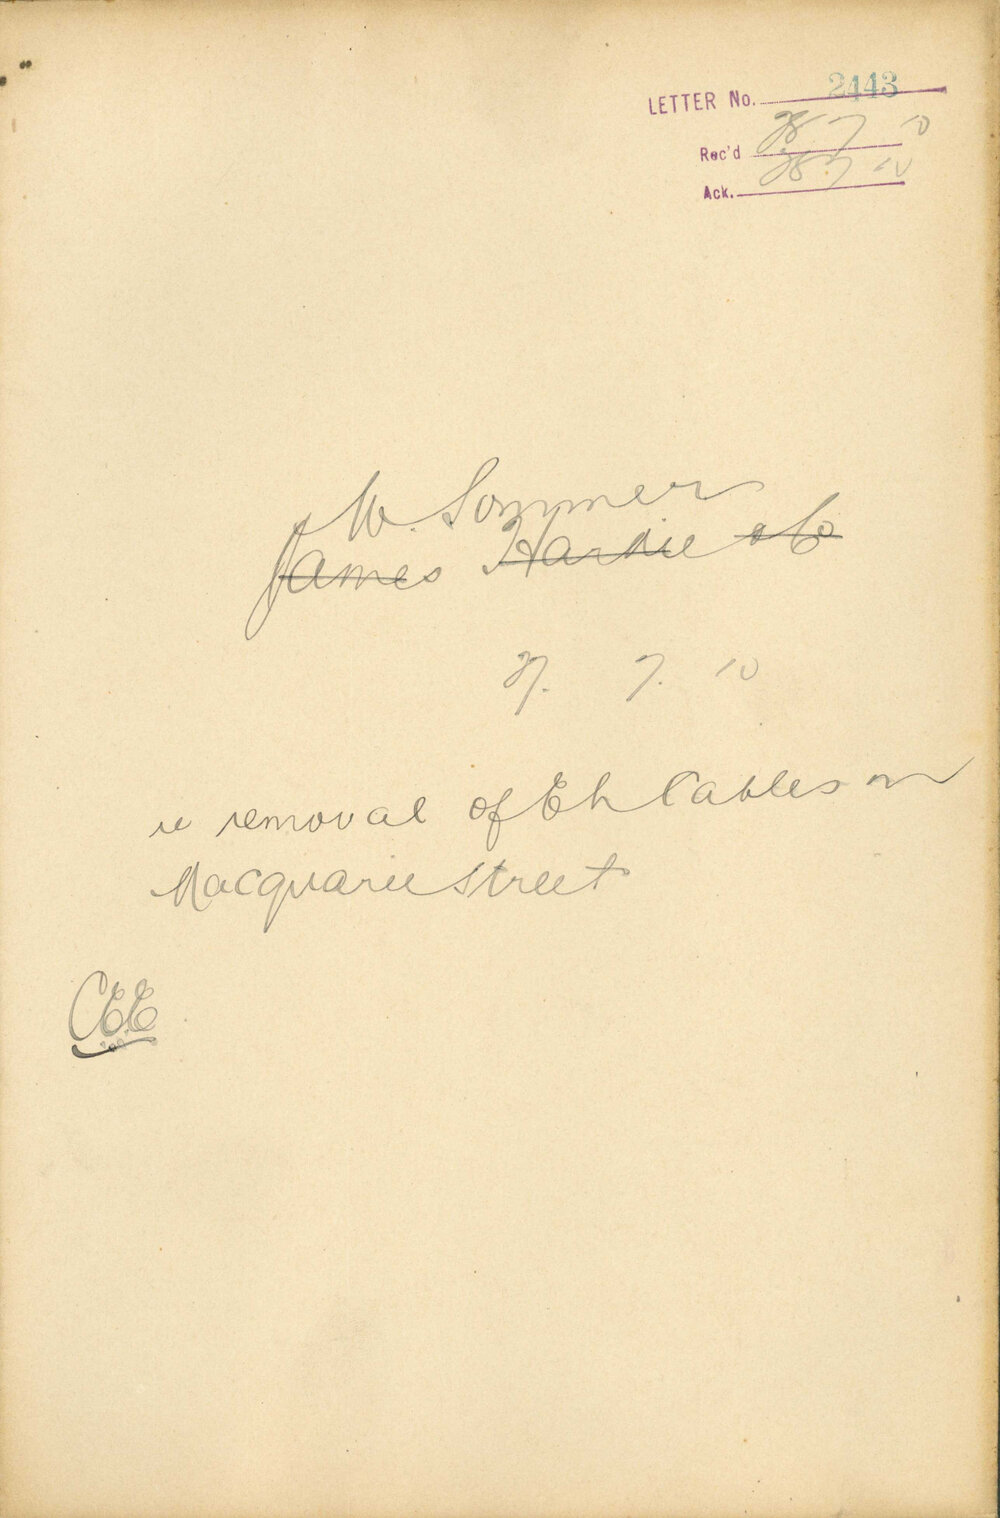 LETTER No. 2443
Rec'd 28 7 10
Ack. 28 7 10
W. Sommer
James Hardie & Co
27. 7. 10
re removal of El Cables in
Macquarie Street
CEE